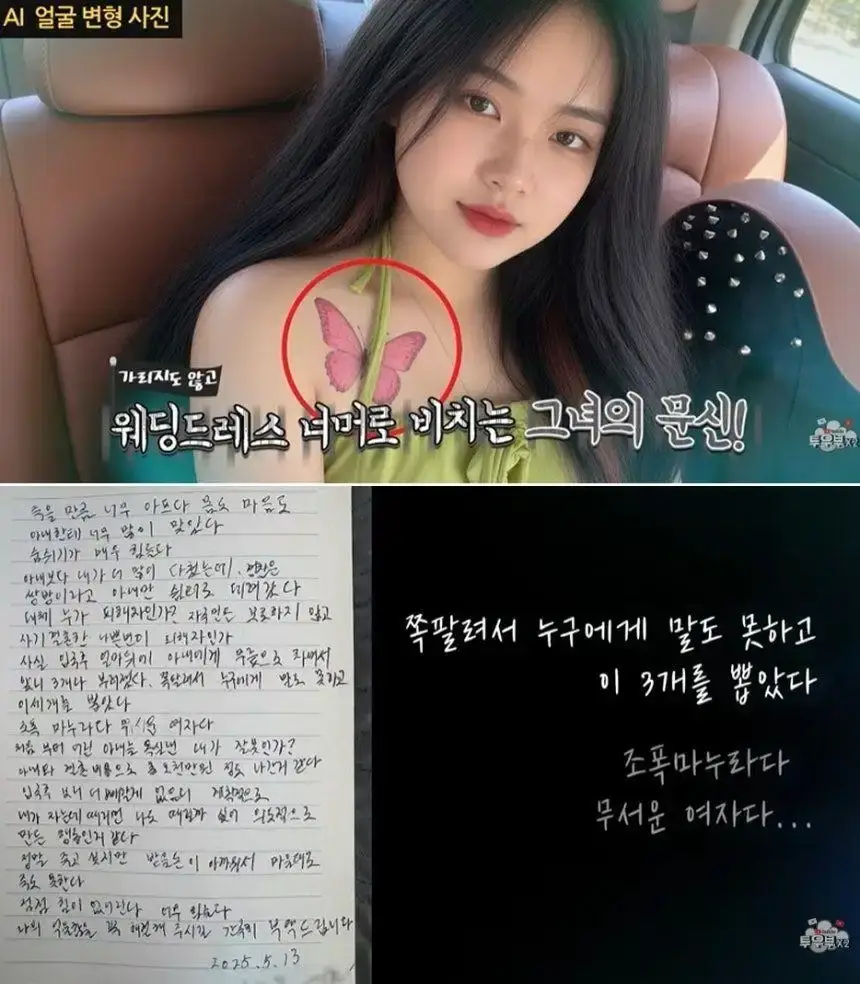 AI 얼굴 변형 사진
가리지도 않고
웨딩드레스 너머로 비치는 그녀의 문신!
투우부X2
죽을 만큼 너무 아프다 몸도 마음도
아내한테 너무 많이 맞았다
숨쉬기가 매우 힘들다
아내보다 내가 더 많이 다쳤는데, 경찰은
쌍방이라고 아내만 쉼터로 데려갔다
대체 누가 피해자인가? 자국민은 보호하지 않고
사기결혼한 나쁜년이 피해자인가
사실 입국후 얼마뒤에 아내에게 무릎으로 차여서
이세개를 뽑았다
조폭 마누라다 무서운 여자다
처음부터 이런 아내를 내가 잘못인가?
아내와 결혼비용으로 총 오천만원 정도 나간거 같다
내가 자는데 때리면 나도 때릴까 싶어 의도적으로
만든 행동인거 같다
정말 죽고 싶지만 받은 돈이 아까워서 마음대로
죽도 못한다
점점 힘이 없어진다 너무 힘들다
나의 억울함을 꼭 해결해 주시길 간곡히 부탁드립니다
2025.5.13
쪽팔려서 누구에게 말도 못하고
이 3개를 뽑았다
조폭마누라다
무서운 여자다...
투우부X2